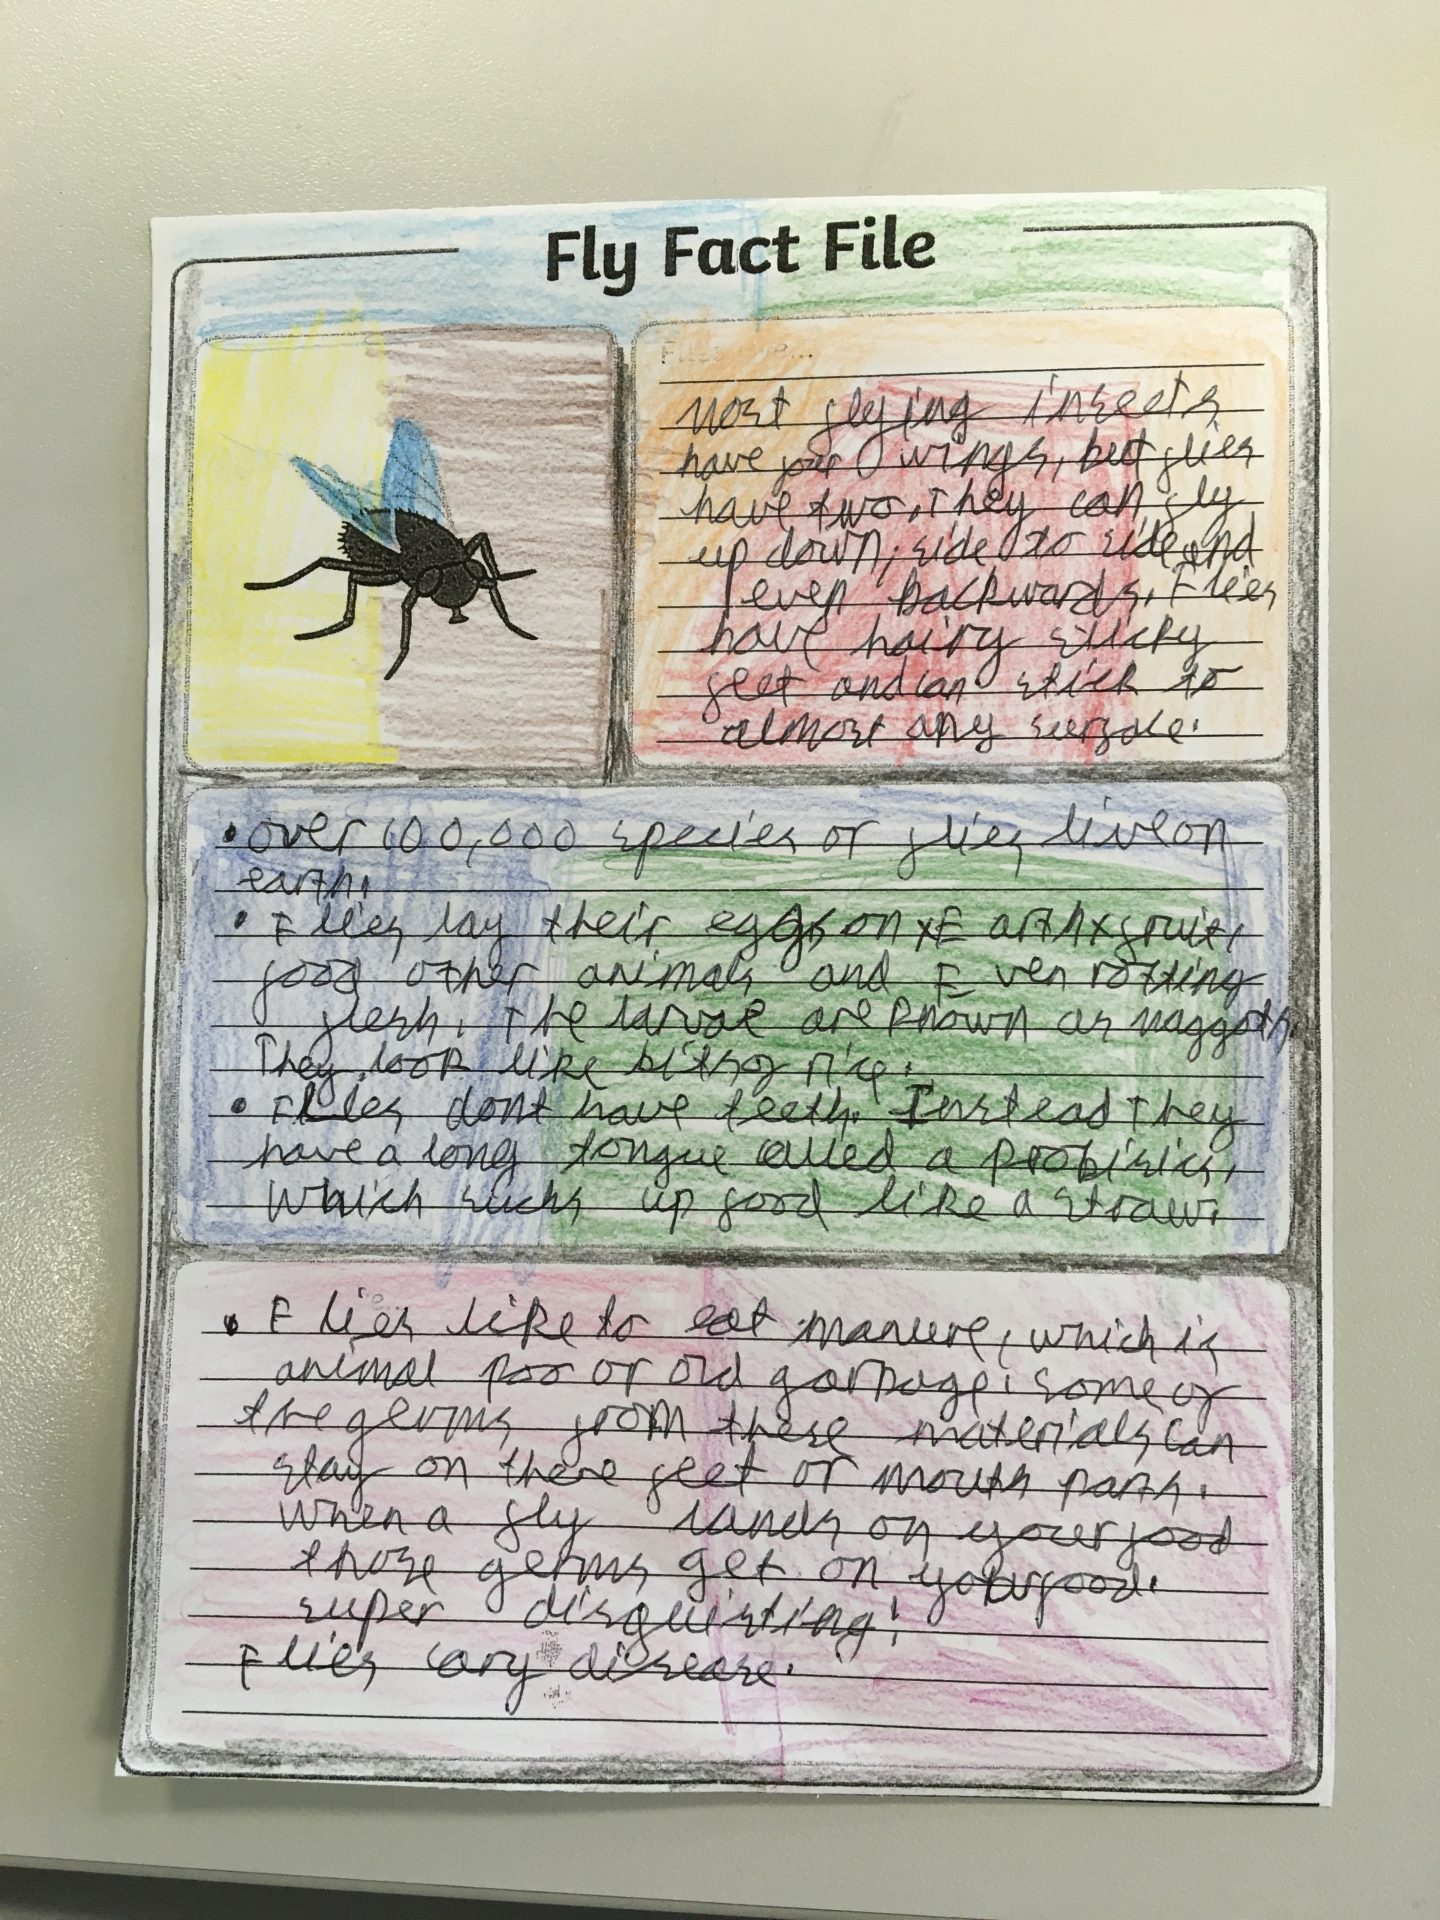 Fly Fact File
Most flying insects
have four wings, but flies
have two. They can fly
up down, side to side and
even backwards. Flies
have hairy sticky
feet and can stick to
almost any surface.
• over 100,000 species of flies live on
earth.
• Flies lay their eggs on xEarthx fruit,
food other animals and Even rotting
flesh. The larvae are known as maggots.
They look like bits of rice.
• Flies dont have teeth. Instead They
have a long tongue called a probisics,
which sucks up food like a straw.
• Flies like to eat manure, which is
animal poo or old garbage. some of
the germs from these materials can
stay on there feet or mouth parts.
When a fly lands on your food
those germs get on your food.
super disguisting!
Flies cary disease.